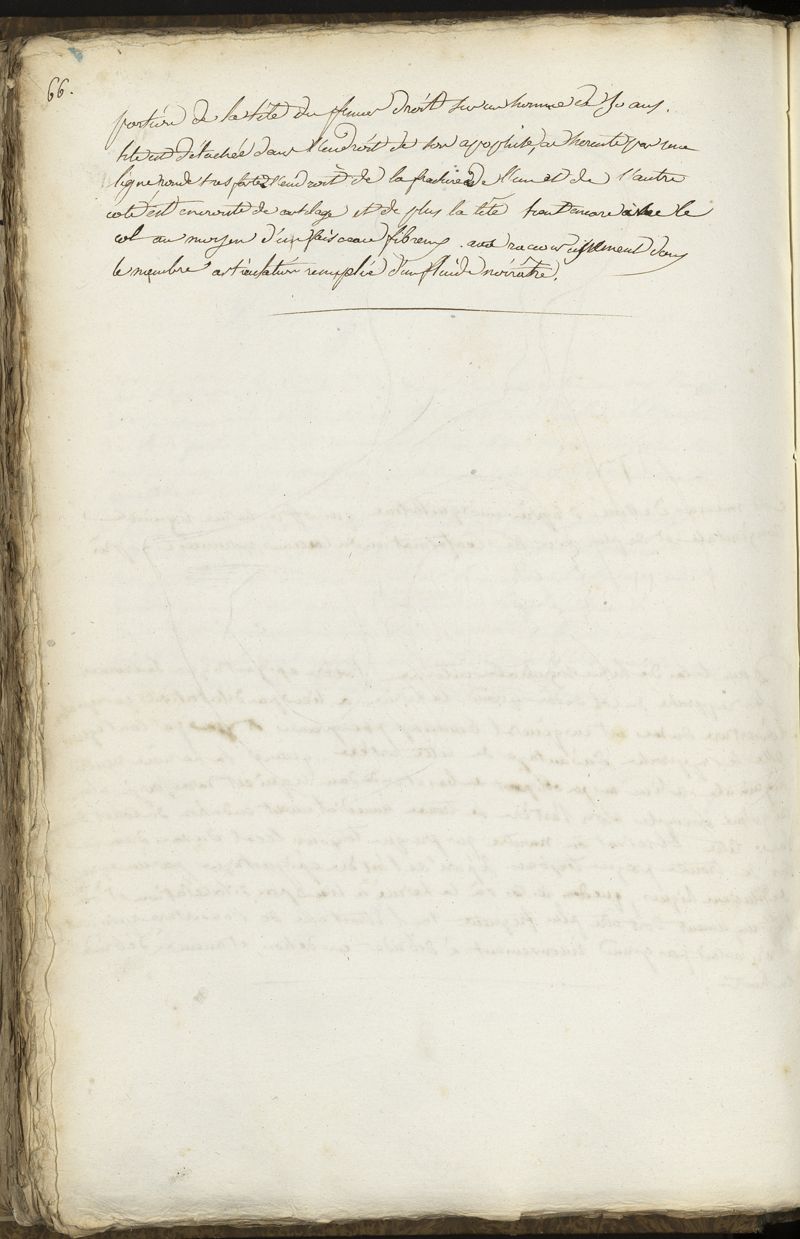 66.
portion de la tête du fémur droit sur un homme de 50 ans.
tete est detachée dans l'endroit de son apophise, par une
ligne ronde tres forte l'endroit de la fracture de l'un et de l'autre
coté est encrouté de cartilage et de plus la tête tient encore le
col au moyen d'un faisceau fibreux avec racourcissement dans
le membre articulation remplie d'un fluide noirâtre.